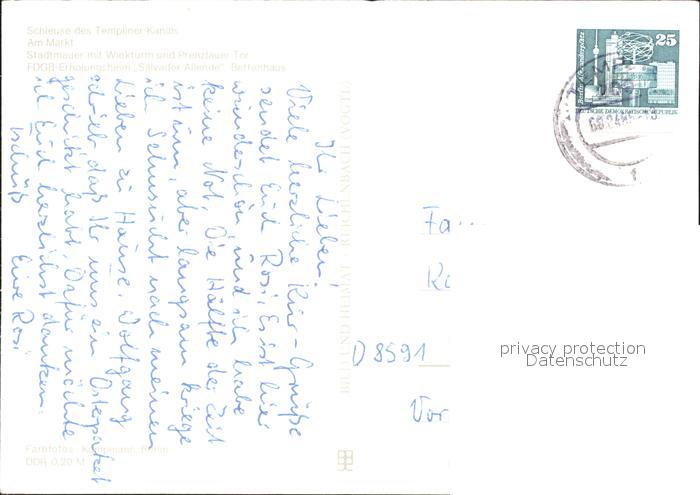 Schleuse des Templiner Kanals
Am Markt
Stadtmauer mit Wiekturm und Prenzlauer Tor
FDGB-Erholungsheim „Salvador Allende", Bettenhaus
Ihr Lieben!
Viele herzliche Kur-Grüße
sendet Euch Rosi, Es ist hier
wunderschön, und ich habe
keine Not, Die Hälfte der Zeit
ist rum, aber langsam kriege
ich Sehnsucht nach meinen
Lieben zu Hause. Wolfgang
schrieb, daß Ihr uns ein Osterpaket
geschickt habt, Dafür möchte
ich Euch herzlichst danken.
Tschüß Eure Rosi
BILD UND HEIMAT REICHENBACH (VOGTL)
Berlin, Alexanderplatz
25
DEUTSCHE DEMOKRATISCHE REPUBLIK
Fa
D 8591
Vor
privacy protection
Datenschutz
Farbfotos: Kampmann, Berlin
DDR 0,20 M